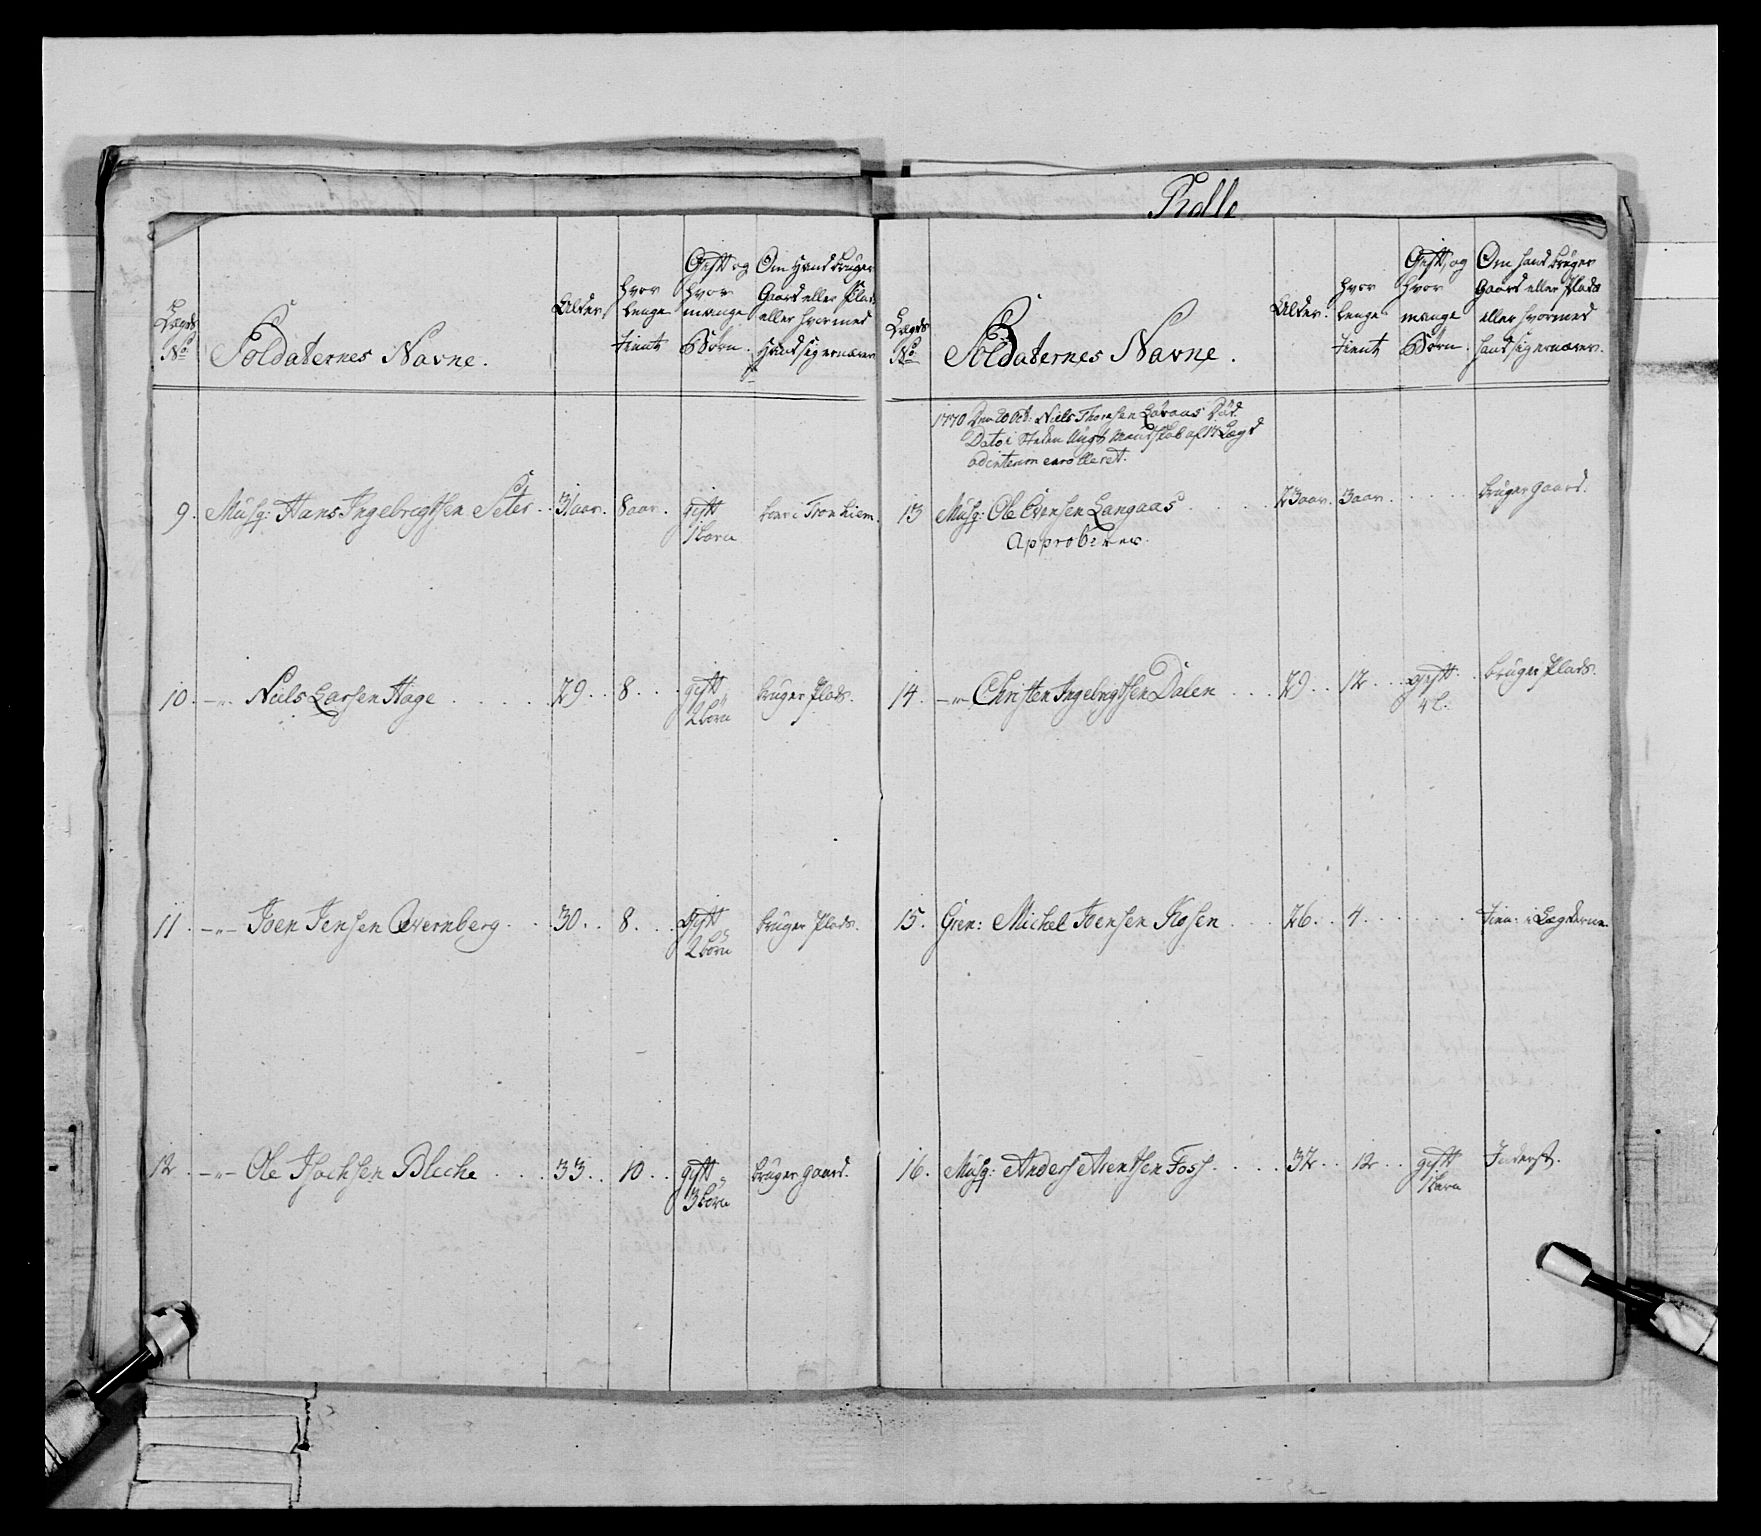 Rolle
Lægds No
Soldaternes Navne.
Alder
hvor lenge tient
Gift og hvor mange Børn.
Om Hand bruger Gaard eller Plads eller hvormed Hand sig ernærer
9. Musq: Hans Ingebrigtsen Seter.. 31 aar. 8 aar. gift 1 barn boer i Tronhiem.
10. -"- Niels Larsen Hage . . . . . 29.. 8. . . . gift 2 børn bruger Plads.
11. -"- Joen Jensen Overnberg . . . 30.. 8. . . . Gift 2 børn bruger Plads.
12. -"- Ole Isachsen Bleche . . . . 33.. 10.. gift 3 børn bruger gaard.
Lægds No
Soldaternes Navne.
Alder.
hvor lenge tient
Gift, og hvor mange Børn.
Om hand bruger Gaard eller Plads eller hvormed hand sig ernærer.
1770 den 20 Oct: Niels Thomesen Løvaas Død.
Dato i Steden Ungt Mandskab af 14 Lægd
ad interim enrolleret.
13 Musq: Ole Evensen Langaas . . . . . 23 aar. 3 aar. . . . . . bruger gaard.
Approberes.
14. -"- Christen Ingebrigtsen Dalen . . . 29.. 12... gift.. 4 b. bruger Plads.
15. Gren: Michel Joensen Kosen . . . 26.. 4. . . . . . . tien: i Lægderne.
16. Musq: Anders Arentsen Foss. . . . . 32.. 12... gift 1 barn Inderst.